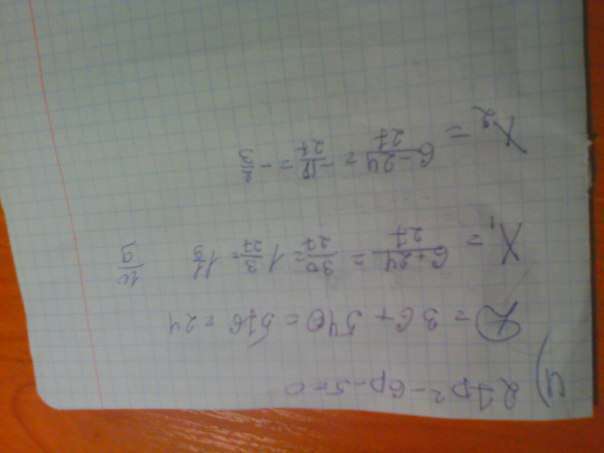 4) 27p² - 6p - 5 = 0
D = 36 + 540 = 576 = 24
X₁ = \frac{6+24}{27} = \frac{30}{27} = 1\frac{3}{27} = 1\frac{1}{9} \frac{10}{9}
X₂ = \frac{6-24}{27} = \frac{-18}{27} = -\frac{2}{3}